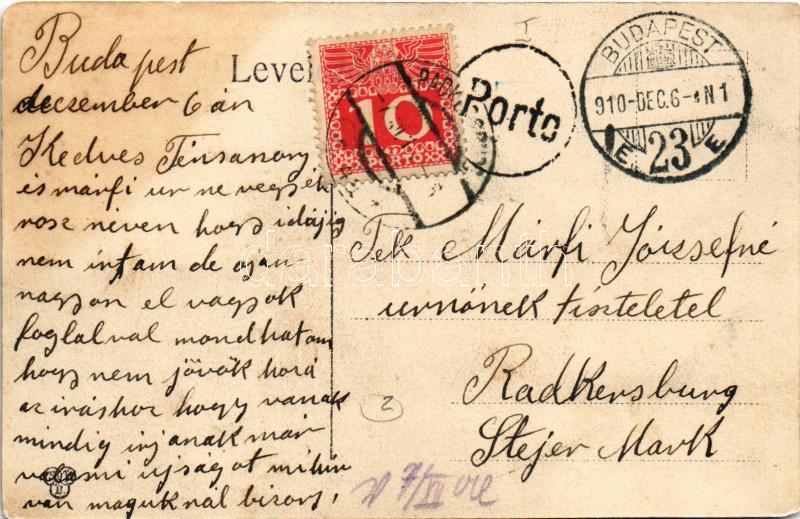 Budapest
december 6 án
Kedves Ténsasszony
és márfi ur ne vegyék
rosz néven hogy idájig
nem írtam de ojan
nagyon el vagyok
foglalval mondhatom
hogy nem jövök horá
az iráshoz hogy vanak
mindig irjanak már
valami ujságot mi hir
van maguknál bizony,
Level
10
PORTO
Porto
BUDAPEST
910-DEC.6-
N1
23
E E
Tek Márfi Józsefné
urnőnek tisztelettel
Radkersburg
Stejer Mark
2
darabanth